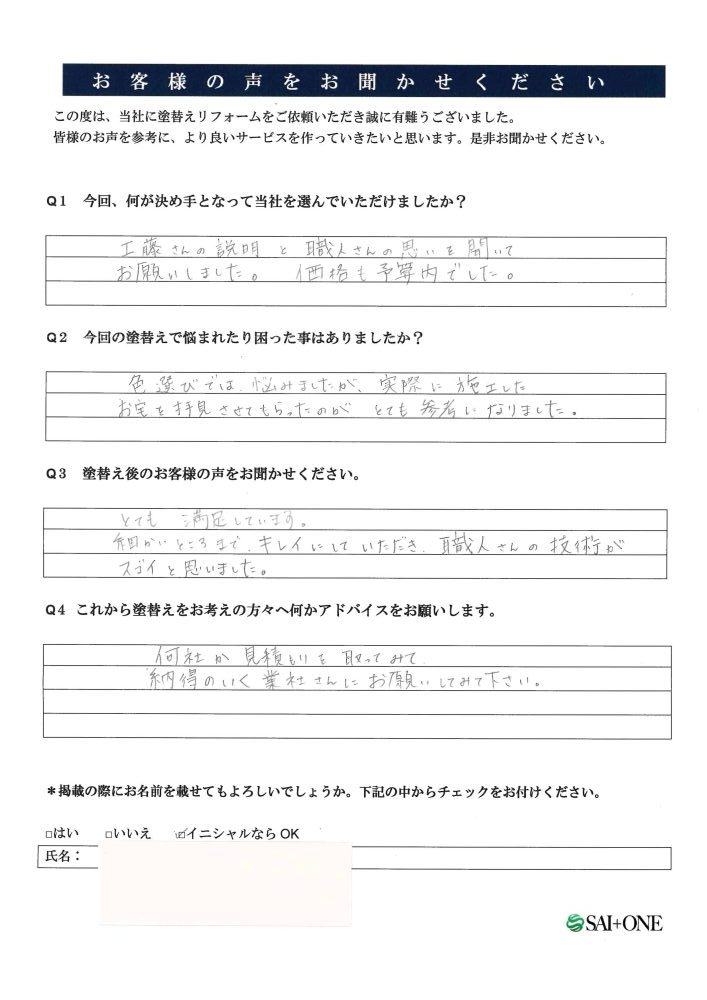 お客様の声をお聞かせください
この度は、当社に塗替えリフォームをご依頼いただき誠に有難うございました。
皆様のお声を参考に、より良いサービスを作っていきたいと思います。是非お聞かせください。
Q1 今回、何が決め手となって当社を選んでいただけましたか？
工藤さんの説明と職人さんの思いを聞いて
お願いしました。 価格も予算内でした。
Q2 今回の塗替えで悩まれたり困った事はありましたか？
色選びでは、悩みましたが、実際に施工した
お宅を拝見させてもらったのが とても参考になりました。
Q3 塗替え後のお客様の声をお聞かせください。
とても 満足しています。
細かいところまで、キレイにしていただき、職人さんの技術が
スゴイと思いました。
Q4 これから塗替えをお考えの方々へ何かアドバイスをお願いします。
何社か見積もりを取ってみて、
納得のいく業社さんにお願いしてみて下さい。
＊掲載の際にお名前を載せてもよろしいでしょうか。下記の中からチェックをお付けください。
□はい □いいえ ☑イニシャルならOK
氏名：
SAI+ONE